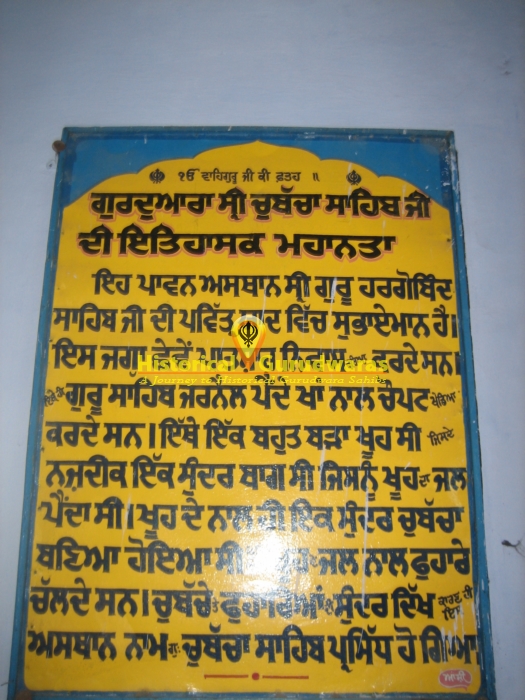 ੴ ਵਾਹਿਗੁਰੂ ਜੀ ਕੀ ਫ਼ਤਹ ॥
ਗੁਰਦੁਆਰਾ ਸ੍ਰੀ ਚੁਬੱਚਾ ਸਾਹਿਬ ਜੀ
ਦੀ ਇਤਿਹਾਸਕ ਮਹਾਨਤਾ
ਇਹ ਪਾਵਨ ਅਸਥਾਨ ਸ੍ਰੀ ਗੁਰੂ ਹਰਗੋਬਿੰਦ
ਸਾਹਿਬ ਜੀ ਦੀ ਪਵਿੱਤ ਵਿੱਚ ਸੁਭਾਏਮਾਨ ਹੈ।
ਇਸ ਜਗਾ ਕਰਦੇ ਸਨ।
Historical Gurudwaras
A Journey to Historical Gurudwara Sahibs
ਗੁਰੂ ਸਾਹਿਬ ਜਰਨੈਲ ਪੈਂਦੇ ਖਾਂ ਨਾਲ ਚੌਪਟ ਖੇਡਿਆ
ਕਰਦੇ ਸਨ। ਇੱਥੇ ਇੱਕ ਬਹੁਤ ਬੜਾ ਖੂਹ ਸੀ ਜਿਸਦੇ
ਨਜ਼ਦੀਕ ਇੱਕ ਸੁੰਦਰ ਬਾਗ ਸੀ ਜਿਸਨੂੰ ਖੂਹ ਦਾ ਜਲ
ਪੈਂਦਾ ਸੀ। ਖੂਹ ਦੇ ਨਾਲ ਹੀ ਇਕ ਸੁੰਦਰ ਚੁਬੱਚਾ
ਬਣਿਆ ਹੋਇਆ ਸੀ ਜਲ ਨਾਲ ਫੁਹਾਰੇ
ਚੱਲਦੇ ਸਨ। ਚੁਬੱਚੇ ਤੇ ਫੁਹਾਰਿਆਂ ਦੇ ਸੁੰਦਰ ਦਿੱਖ ਕਾਰਣ ਹੀ ਇਹ
ਅਸਥਾਨ ਨਾਮ ਗੁ: ਚੁਬੱਚਾ ਸਾਹਿਬ ਪ੍ਰਸਿੱਧ ਹੋ ਗਿਆ